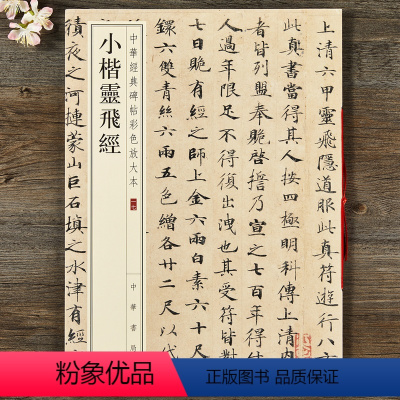 上清六甲靈飛隱道服此真符遊行八方
此真書當得其人按四極明科傳上清內
者皆列盟奉跪啓誓乃宣之七百年得
人過年限足不得復出洩也其受符皆對
有經之師上金六兩白素六十尺
鐶六雙青絲六兩五色繒各廿二尺以代
中華經典碑帖彩色放大本
中華書局
小楷靈飛經
積夜之河揵蒙山巨石填之水津有經
粉象优品